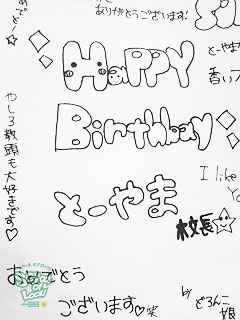 ありがとうございます!
おめでとー☆
とーやま
香い
HaPPY
Birthday
とーやま
校長☆
やしろ教頭も大好きです♡
I like
Yo
おめでとう
ございます♡笑
by どろんこ娘